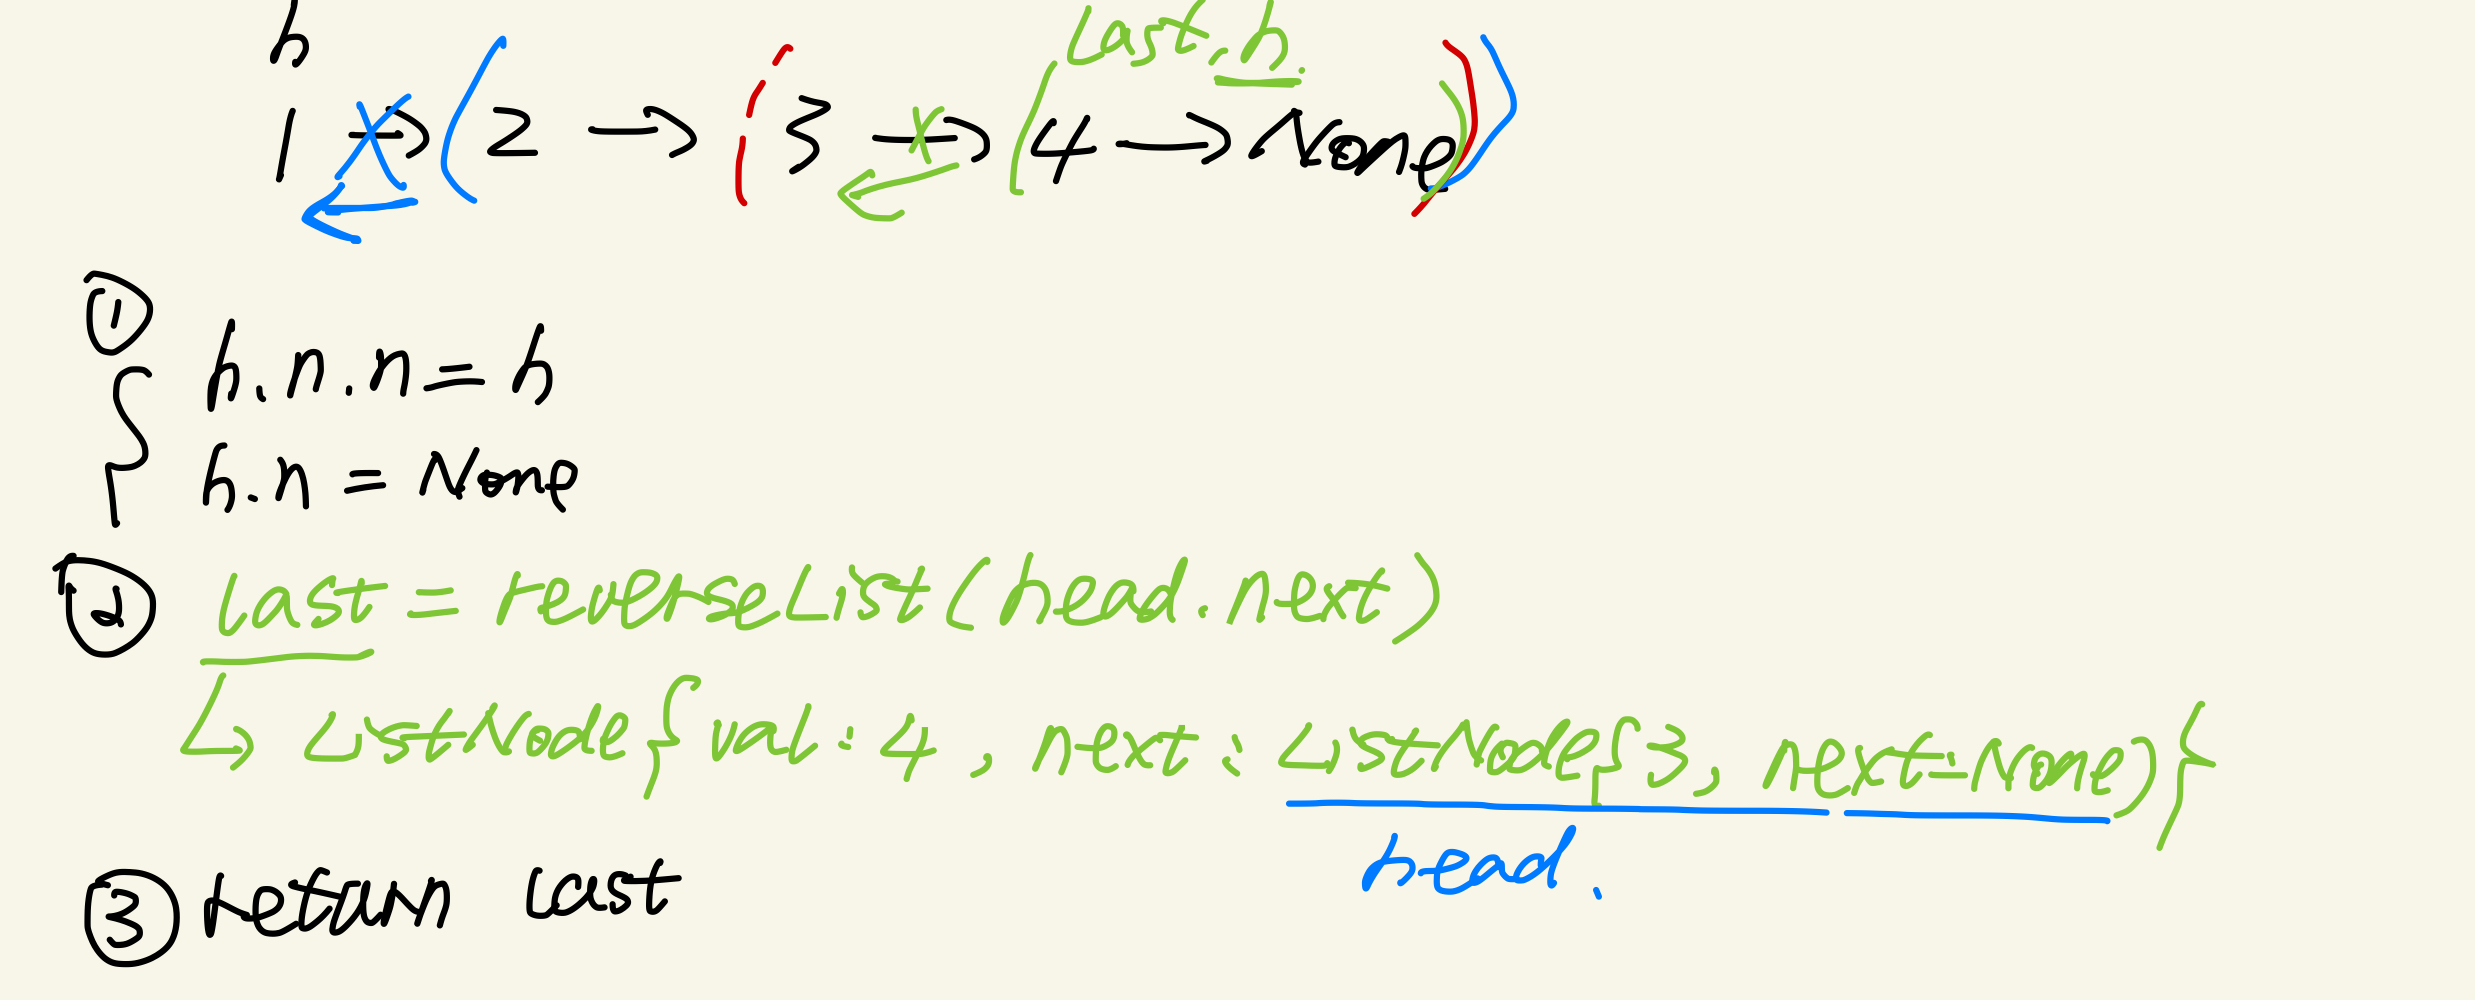 h
last.h.
1 → (2 → (3 → (4 → None)))
①
h.n.n = h
h.n = None
② last = reverseList(head.next)
↳ ListNode{val: 4, next: ListNode{3, next=None}}
head.
③ return last